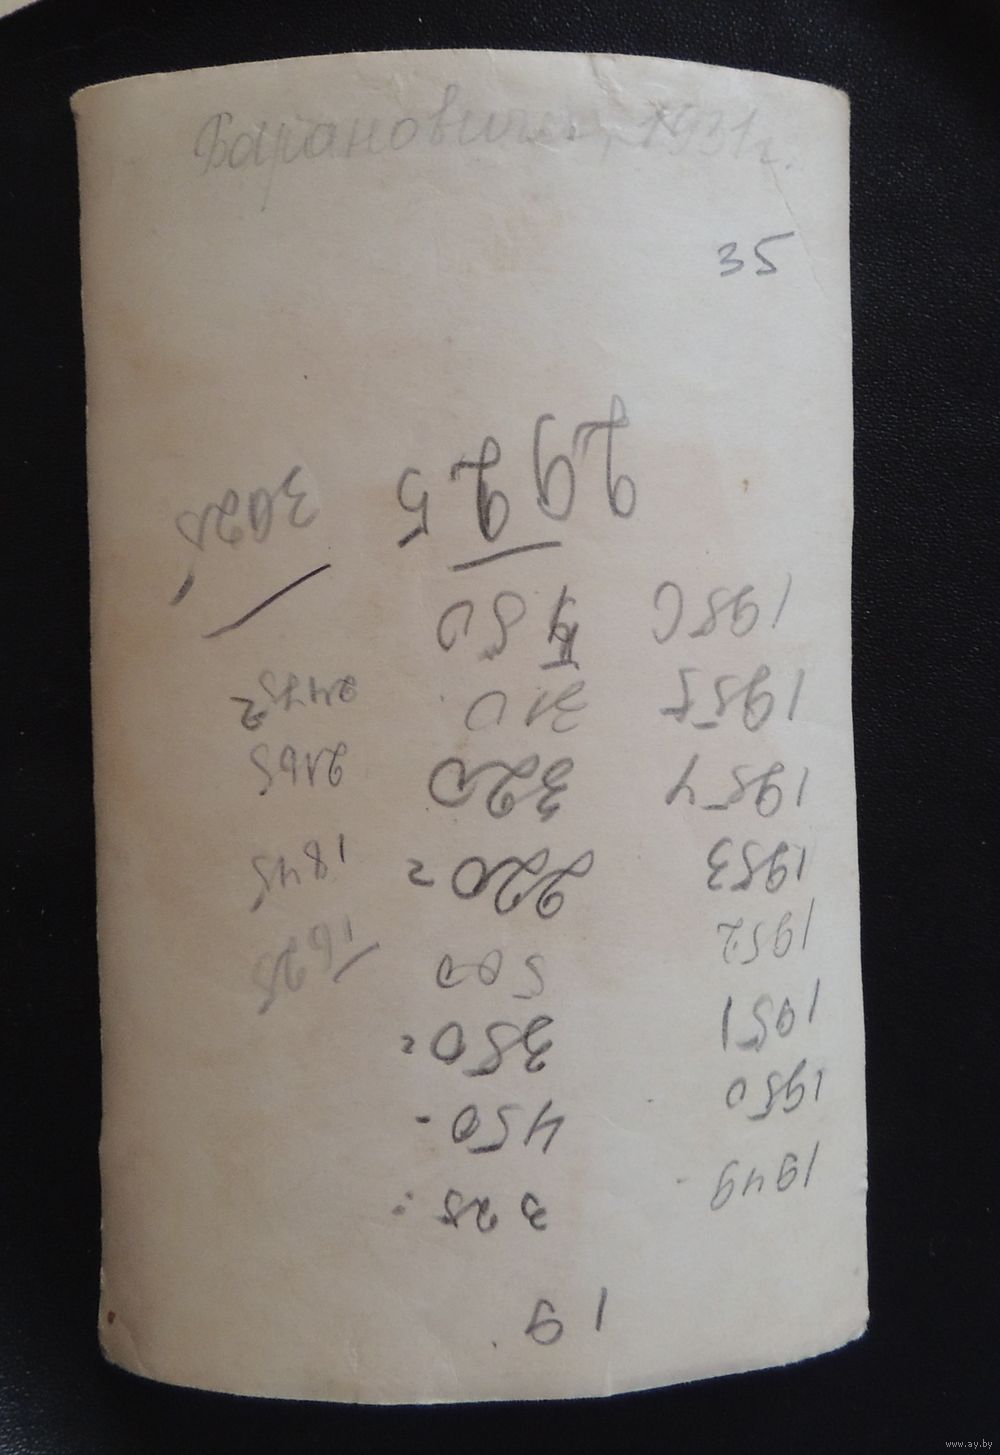 Барановичи, 1931 г.
35
19
1949 - 325 =
1950 450 -
1951 350 =
1952 500 1625
1953 220 = 1845
1954 320 2165
1955 310 2475 =
1956 450
2925 3025
www.ay.by